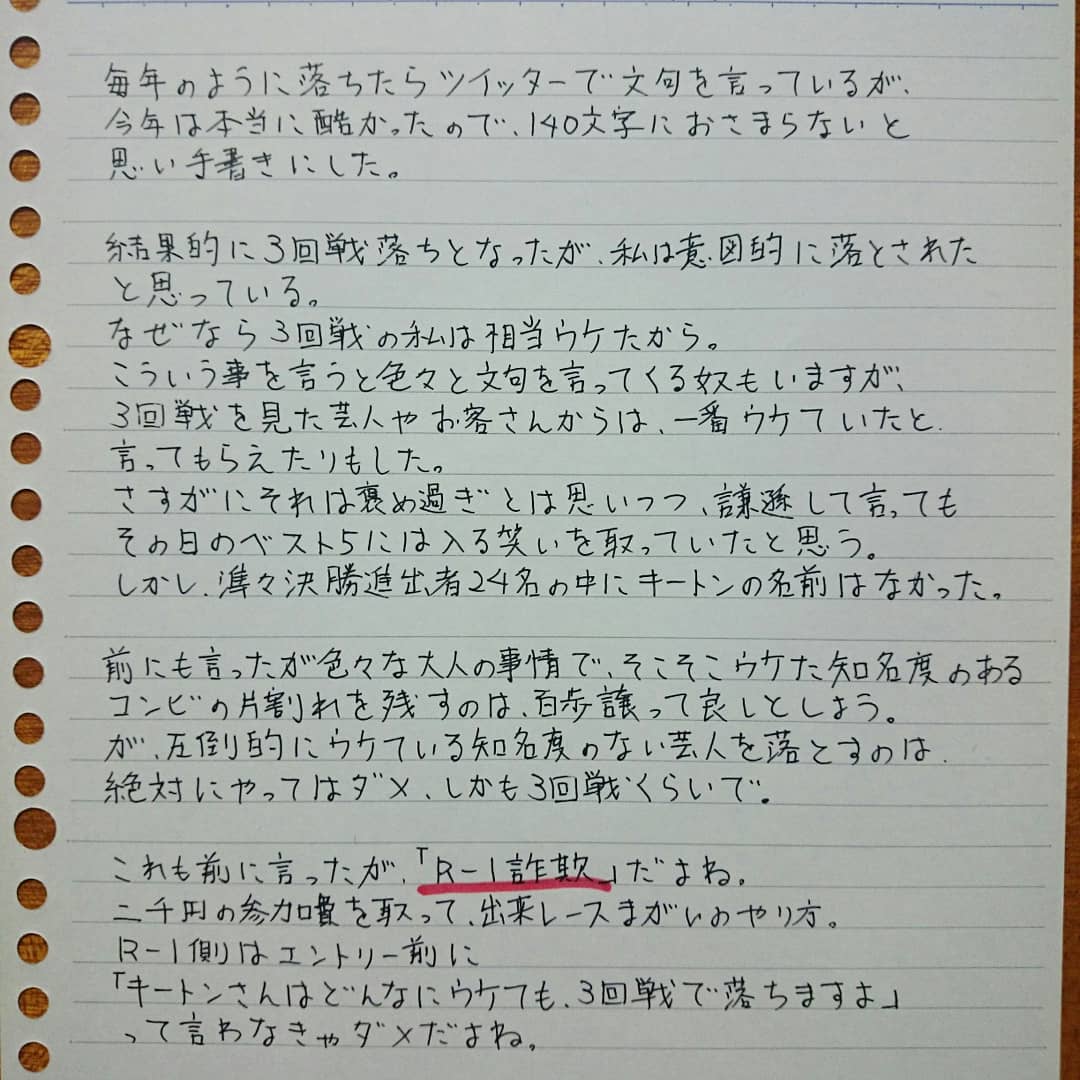 毎年のように落ちたらツイッターで文句を言っているが、
今年は本当に酷かったので、140文字におさまらないと
思い手書きにした。
結果的に3回戦落ちとなったが、私は意図的に落とされた
と思っている。
なぜなら3回戦の私は相当ウケたから。
こういう事を言うと色々と文句を言ってくる奴もいますが、
3回戦を見た芸人やお客さんからは、一番ウケていたと
言ってもらえたりもした。
さすがにそれは褒め過ぎとは思いつつ、謙遜して言っても
その日のベスト5には入る笑いを取っていたと思う。
しかし、準々決勝進出者24名の中にキートンの名前はなかった。
前にも言ったが色々な大人の事情で、そこそこウケた知名度のある
コンビの片割れを残すのは、百歩譲って良しとしよう。
が、圧倒的にウケている知名度のない芸人を落とすのは、
絶対にやってはダメ、しかも3回戦くらいで。
これも前に言ったが、「R-1詐欺」だよね。
二千円の参加費を取って、出来レースまがいのやり方。
R-1側はエントリー前に
「キートンさんはどんなにウケても、3回戦で落ちますよ」
って言わなきゃダメだよね。